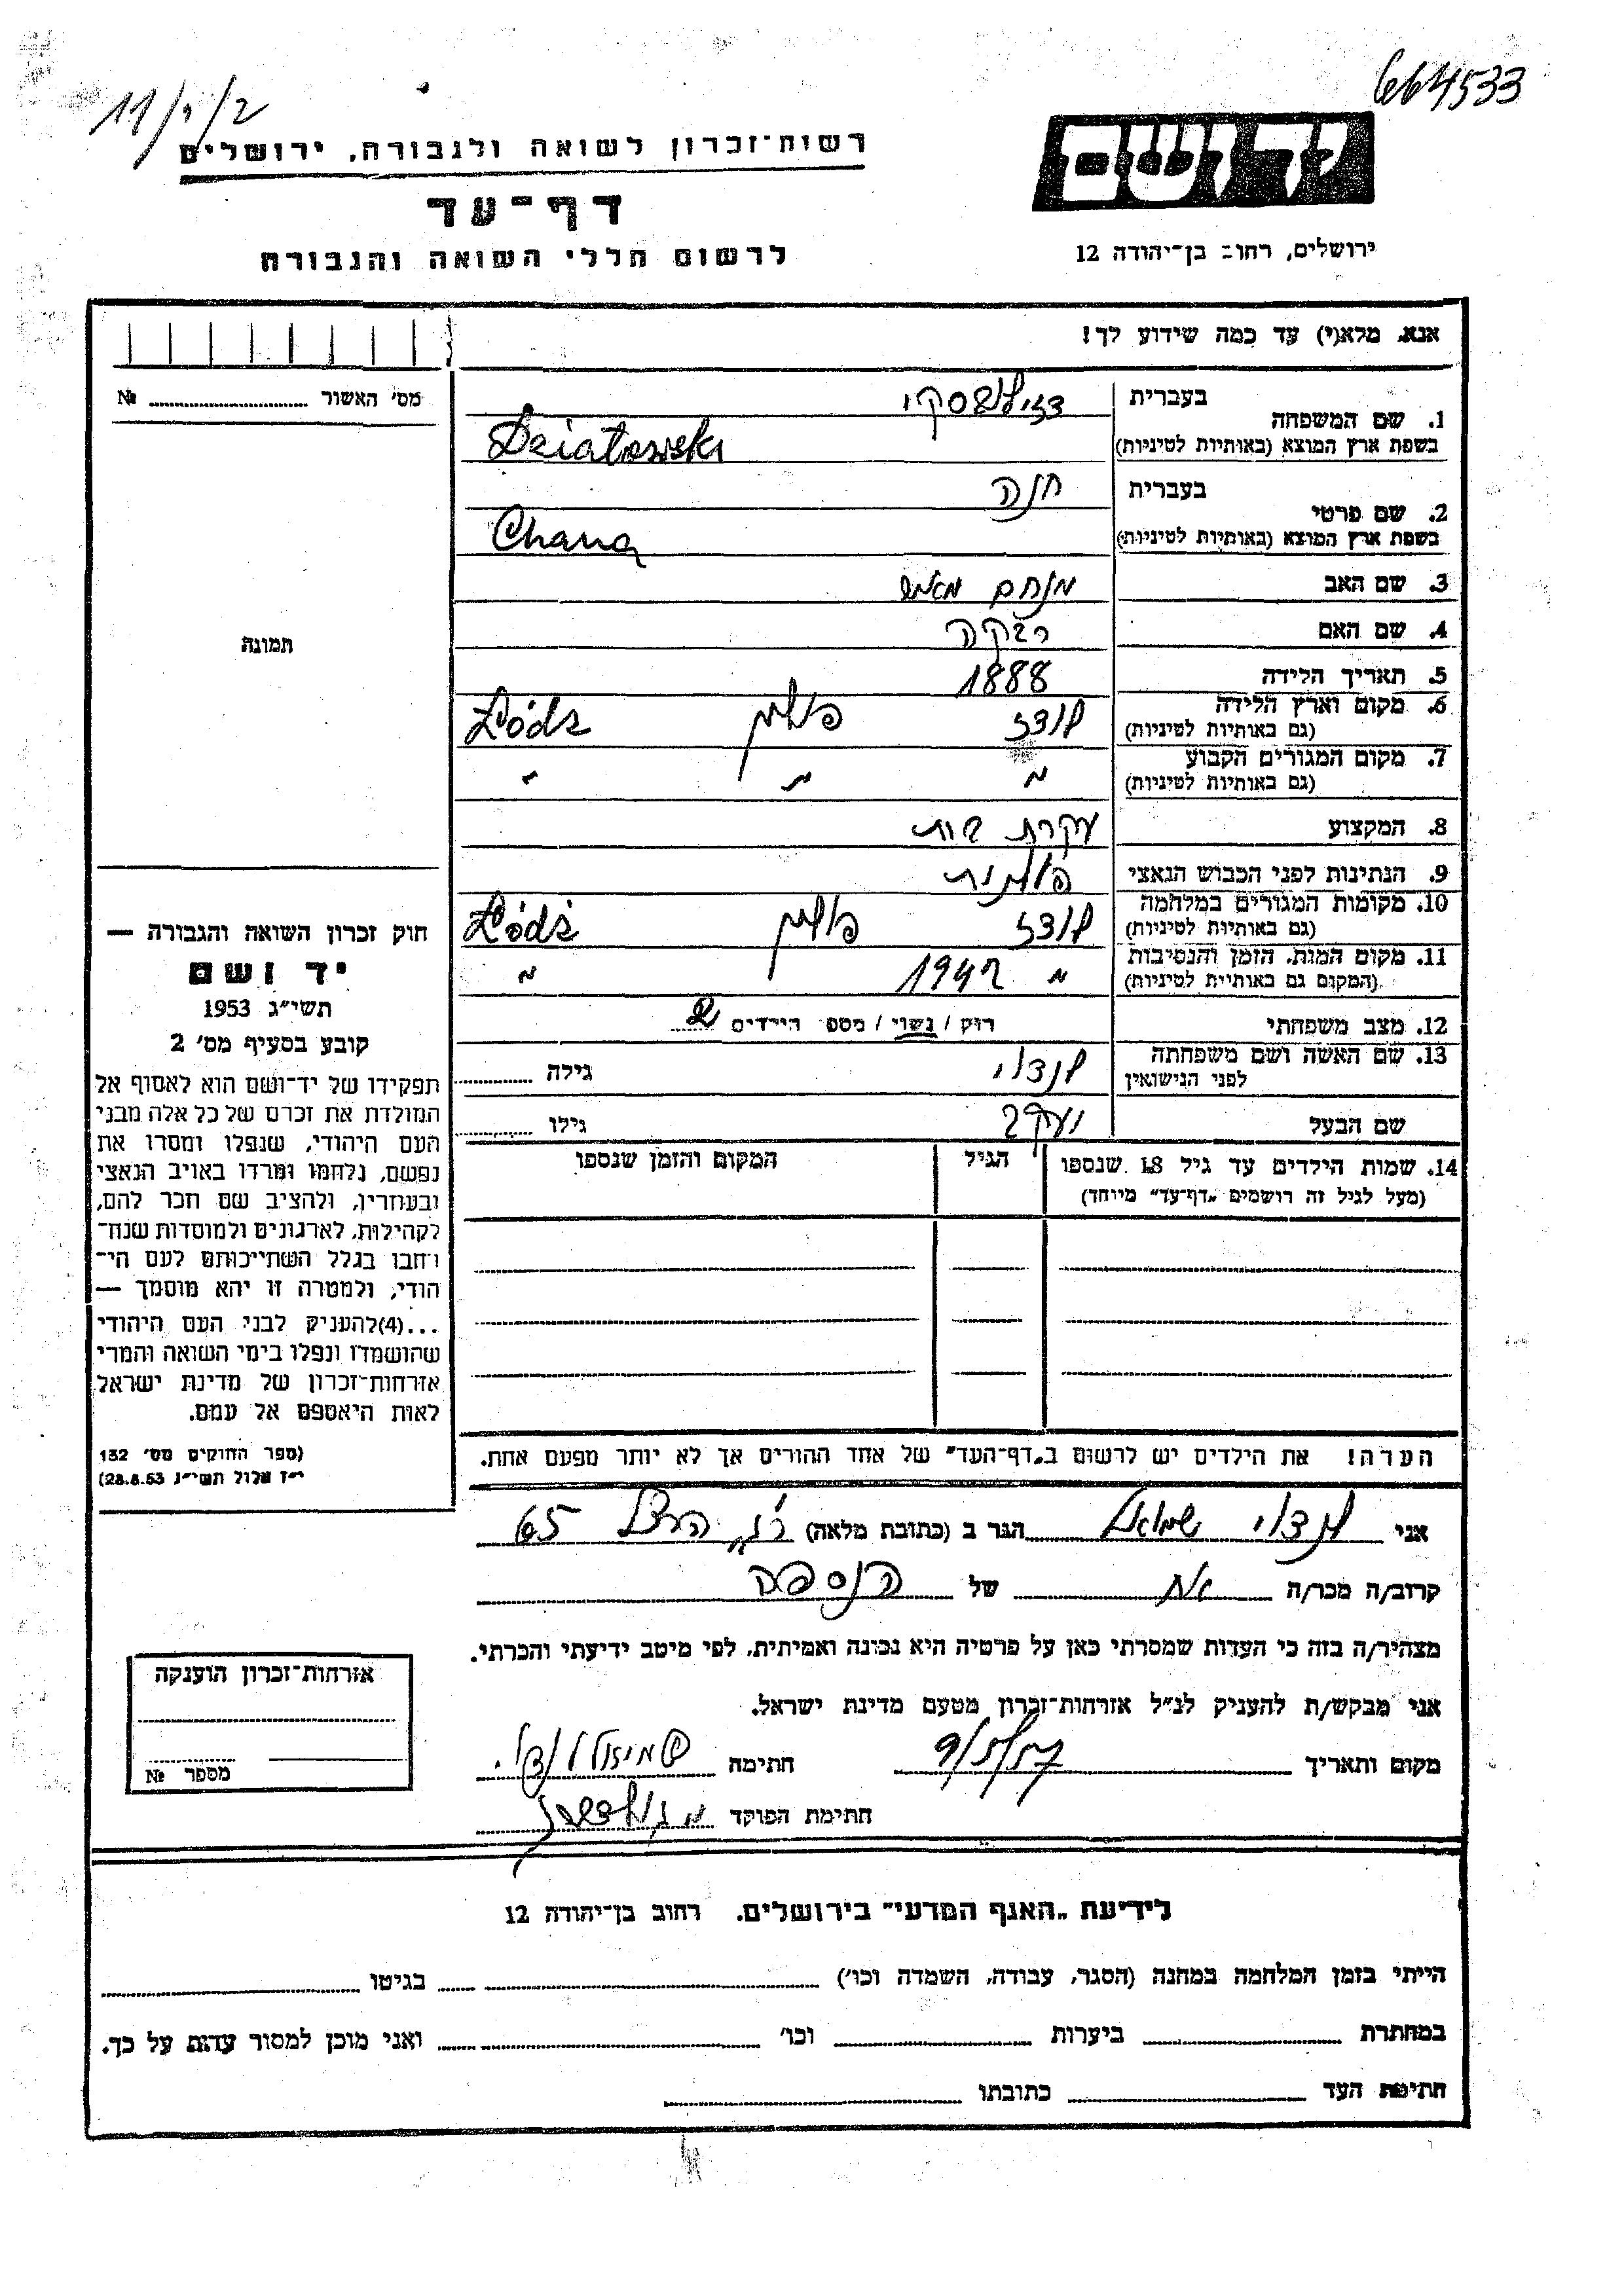 664533
יד ושם
ירושלים, רחוב בן־יהודה 12
רשות־זכרון לשואה ולגבורה, ירושלים
דף־עד
לרשום חללי השואה והגבורה
אנא, מלא(י) עד כמה שידוע לך!
מס' האשור № 
1. שם המשפחה בעברית
בשפת ארץ המוצא (באותיות לטיניות) Dziatowski
2. שם פרטי בעברית חנה
בשפת ארץ המוצא (באותיות לטיניות) Chana
3. שם האב מנחם
4. שם האם רבקה
5. תאריך הלידה 1888
6. מקום וארץ הלידה (גם באותיות לטיניות) לודז פולין Łódź
7. מקום המגורים הקבוע (גם באותיות לטיניות) " " "
8. המקצוע עקרת בית
9. הנתינות לפני הכבוש הנאצי פולנית
10. מקומות המגורים במלחמה (גם באותיות לטיניות) לודז פולין Łódź
11. מקום המות, הזמן והנסיבות (המקום גם באותיות לטיניות) " 1942 "
12. מצב משפחתי רוק / נשוי / מספ הילדים 2
13. שם האשה ושם משפחתה לפני הנישואין לנדוי גילה
שם הבעל יעקב גילו
14. שמות הילדים עד גיל 18 שנספו הגיל המקום והזמן שנספו
(מעל לגיל זה רושמים „דף־עד" מיוחד)
הערה! את הילדים יש לרשום ב„דף־העד" של אחד ההורים אך לא יותר מפעם אחת.
תמונה
חוק זכרון השואה והגבורה —
יד ושם
תשי"ג 1953
קובע בסעיף מס' 2
תפקידו של יד־ושם הוא לאסוף אל
המולדת את זכרם של כל אלה מבני
העם היהודי, שנפלו ומסרו את
נפשם, נלחמו ומרדו באויב הנאצי
ובעוזריו, ולהציב שם וזכר להם,
לקהילות, לארגונים ולמוסדות שנח־
רחבו בגלל השתייכותם לעם הי־
הודי, ולמטרה זו יהא מוסמך —
...(4)להעניק לבני העם היהודי
שהושמדו ונפלו בימי השואה והמרי
אזרחות־זכרון של מדינת ישראל
לאות היאספם אל עמם.
(ספר החוקים מס' 132
י"ז אלול תשי"ג 28.8.53)
אני לנדוי שמואל הגר ב (כתובת מלאה) ר"ג הרצל 65
קרוב/ה מכר/ה אח של הנספה
מצהיר/ה בזה כי העדות שמסרתי כאן על פרטיה היא נכונה ואמיתית, לפי מיטב ידיעתי והכרתי.
אני מבקש/ת להעניק לנ"ל אזרחות־זכרון מטעם מדינת ישראל.
מקום ותאריך חתימה
חתימת הפוקד
אזרחות־זכרון הוענקה
מספר №
לידיעת „האגף המדעי" בירושלים, רחוב בן־יהודה 12
הייתי בזמן המלחמה במחנה (הסגר, עבודה, השמדה וכו') בגיטו
במחתרת ביערות וכו' ואני מוכן למסור עדות על כך.
חתימת העד כתובתו